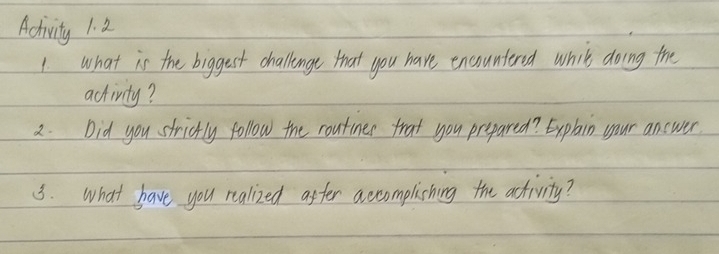 Activity 1.2
1. What is the biggest challenge that you have encountered while doing the
activity?
2. Did you strictly follow the routines that you prepared? Explain your answer.
3. What have you realized after accomplishing the activity?